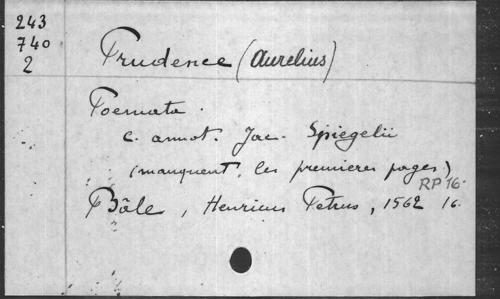 243
740
2
Prudence (Aurelius)
Poemata.
c. annot. Jac. Spiegelii
(manquent les premieres pages)
RP 16.
Bâle, Henricus Petrus, 1562 16.